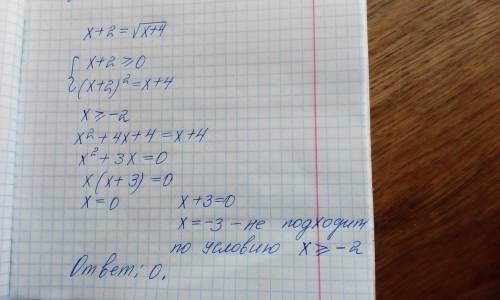 x+2=√x+4
{ x+2≥0
(x+2)²=x+4
x≥-2
x²+4x+4=x+4
x²+3x=0
x(x+3)=0
x=0 x+3=0
x=-3 - не подходит
по условию x≥-2
Ответ: 0.